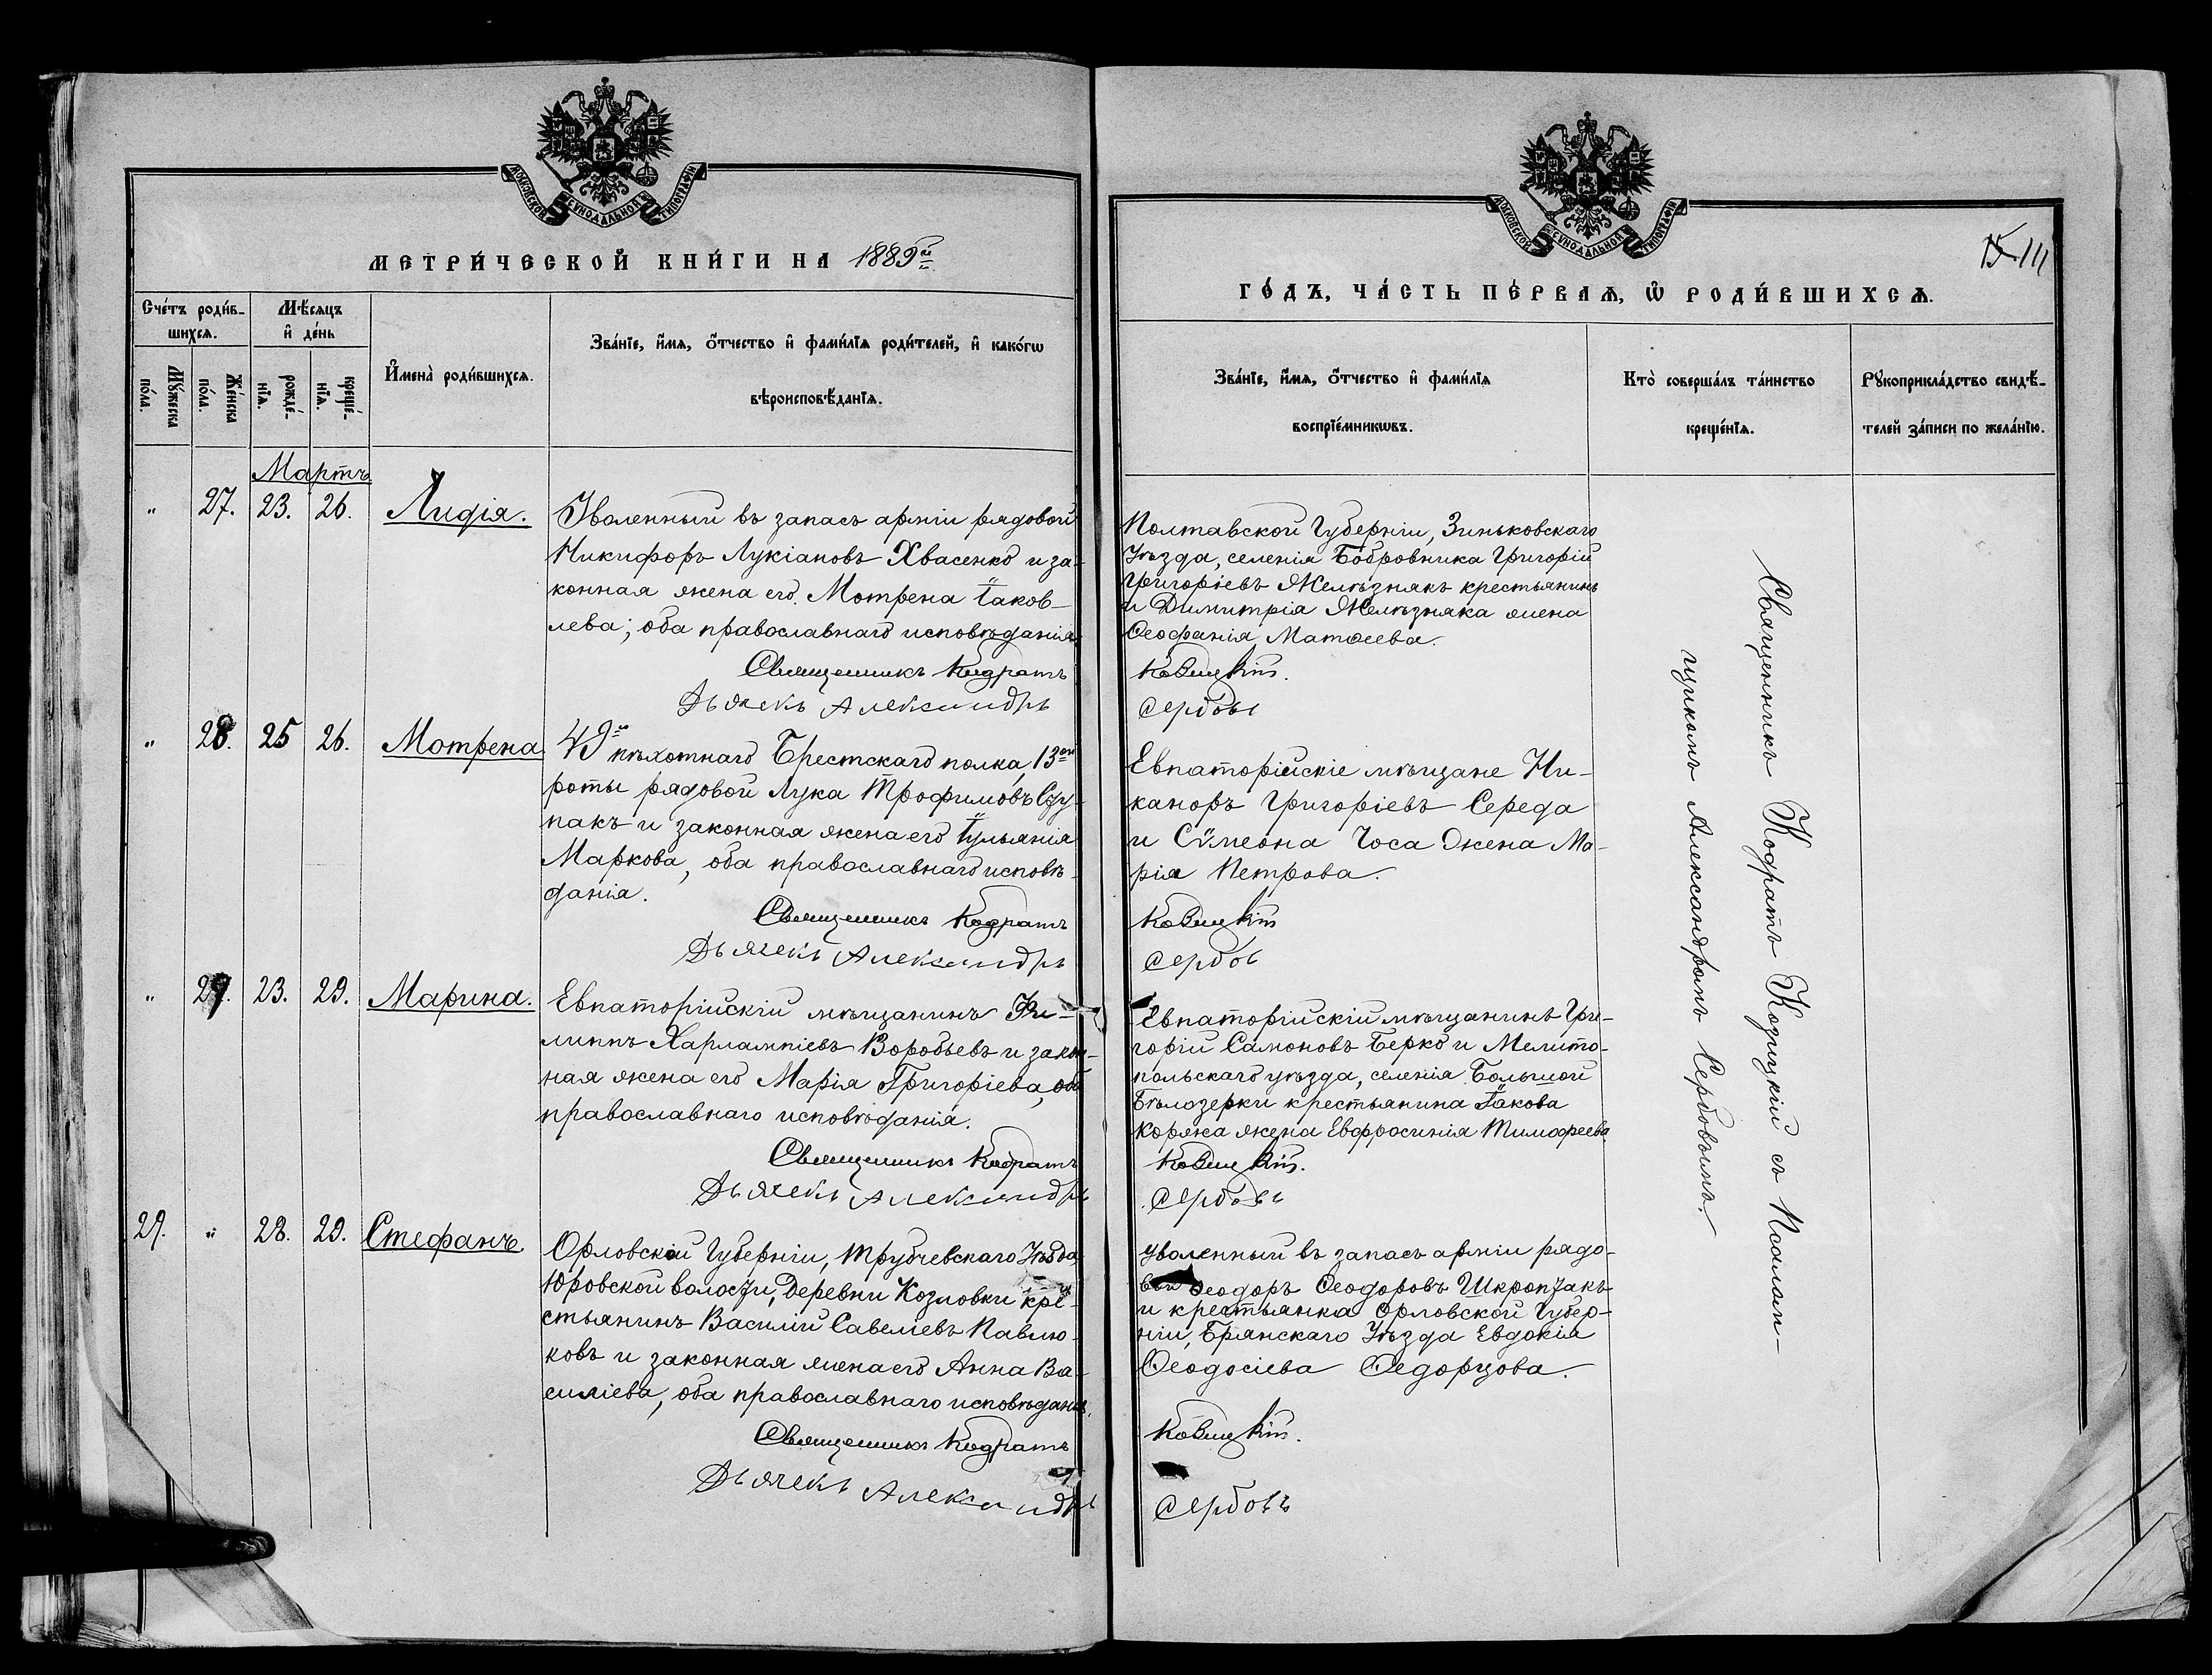 МОСКОВСКОЙ СѴНОДАЛЬНОЙ ТИПОГРАФІИ
МЕТРИ́ЧЕСКОЙ КНИ́ГИ НА 1889й
Сче́тъ роди́в-
шихся.
Мѣ́сяцъ
и҆ де́нь
Мꙋ́жеска
по́ла.
Же́нска
по́ла.
рожде́-
нїѧ.
креще́-
нїѧ.
И҆мена̀ роди́вшихсѧ.
Зва́нїе, и҆́мѧ, о҆́тчество и҆ фами́лїѧ роди́телей, и҆ како́гѡ
вѣроисповѣ́данїѧ.
Мартъ
" 27. 23. 26. Лидія.
Уволенный въ запасъ арміи рядовой
Никифоръ Лукіановъ Хвасенко и за-
конная жена его Мотрена Іаков-
лева; оба православнаго исповѣданія
Священникъ Кодратъ
Дьячекъ Александръ
" 28. 25 26. Мотрена
49го пѣхотнаго Брестскаго полка, 13ой
роты рядовой Лука Трофимовъ
пакъ и законная жена его Іульянія
Маркова, оба православнаго исповѣ-
данія.
Священникъ Кодратъ
Дьячекъ Александръ
" 29. 23. 29. Марина.
Евпаторійскій мѣщанинъ Фи-
липпъ Харлампіевъ Воробьевъ и закон-
ная жена его Марія Григоріева, оба
православнаго исповѣданія.
Священникъ Кодратъ
Дьячекъ Александръ
29. " 28. 29. Стефанъ.
Орловской Губерніи, Трубчевскаго Уѣзда,
Юровской волости, деревни Козловки кре-
стьянинъ Василій Савеліевъ Павлю-
ковъ и законная жена его Анна Ва-
силіева, оба православнаго исповѣданія.
Священникъ Кодратъ
Дьячекъ Александръ
МОСКОВСКОЙ СѴНОДАЛЬНОЙ ТИПОГРАФІИ
15 111
ГО́ДЪ, ЧА́СТЬ ПЕ́РВАѦ, Ѡ҆ РОДИ́ВШИХСѦ.
Зва́нїе, и҆́мѧ, о҆́тчество и҆ фами́лїѧ
воспрїе́мникѡвъ.
Кто̀ соверша́лъ та́инство
креще́нїѧ.
Рꙋкоприкла́дство свидѣ́-
телей за́писи по жела́нїю.
Полтавской Губерніи, Зиньковскаго
Уѣзда, селенія Бобровника Григорій
Григоріевъ Желѣзнякъ крестьянинъ
и Димитрія Желѣзняка жена
Ѳеофанія Матѳеева.
Козицкій.
Сербовъ
Евпаторійскіе мѣщане Ни-
каноръ Григоріевъ Середа
и Сѵмеона Чоса жена Ма-
рія Петрова.
Козицкій
Сербовъ
Евпаторійскій мѣщанинъ Гри-
горій Самоновъ Берко и Мелито-
польскаго уѣзда, селенія Большой
Бѣлозерки крестьянина Іакова
Коряка жена Евфросинія Тимоѳеева
Козицкій.
Сербовъ
Уволенный въ запасъ арміи рядо-
вой Ѳеодоръ Ѳеодоровъ Шкропакъ
и крестьянка Орловской Губер-
ніи, Брянскаго Уѣзда Евдокія
Ѳеодосіева Ѳедорцова.
Козицкій.
Сербовъ
Священникъ Кодратъ Козицкій съ Псалом-
щикомъ Александромъ Сербовымъ.